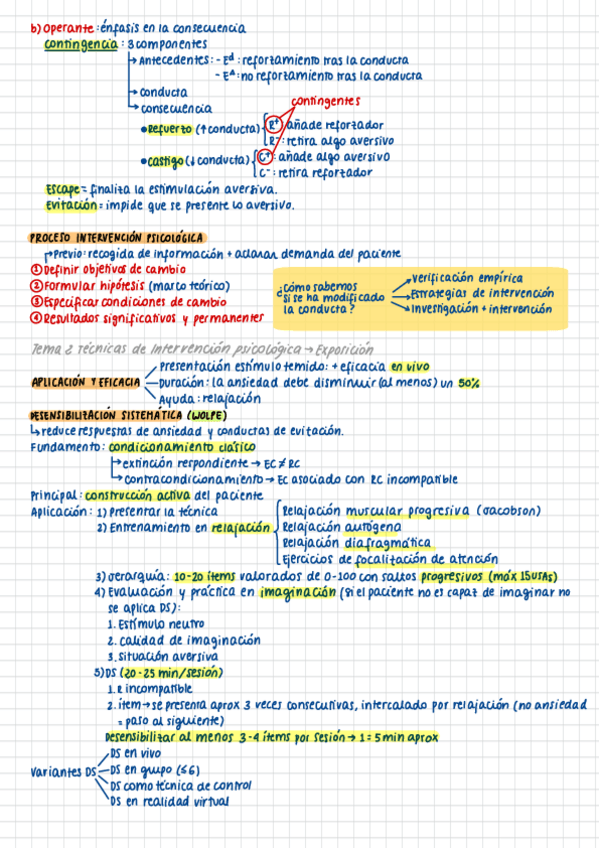 b) Operante: énfasis en la consecuencia
contingencia: 3 componentes
Antecedentes: - Eᵈ: reforzamiento tras la conducta
- E^Δ: no reforzamiento tras la conducta
conducta
consecuencia
contingentes
• Refuerzo (↑conducta) R⁺: añade reforzador
R⁻: retira algo aversivo
• castigo (↓conducta) C⁺: añade algo aversivo
C⁻: retira reforzador
Escape = finaliza la estimulación aversiva.
Evitación = impide que se presente lo aversivo.
PROCESO INTERVENCIÓN PSICOLÓGICA
Previo: recogida de información + aclarar demanda del paciente
① Definir objetivos de cambio
② Formular hipótesis (marco teórico)
③ Especificar condiciones de cambio
④ Resultados significativos y permanentes
¿cómo sabemos
si se ha modificado
la conducta?
Verificación empírica
Estrategias de intervención
Investigación + intervención
Tema 2 Técnicas de Intervención psicológica → Exposición
APLICACIÓN Y EFICACIA
Presentación estímulo temido: + eficacia en vivo
Duración: la ansiedad debe disminuir (al menos) un 50%
Ayuda: relajación
DESENSIBILIZACIÓN SISTEMÁTICA (WOLPE)
↳ reduce respuestas de ansiedad y conductas de evitación.
Fundamento: condicionamiento clásico
extinción respondiente → EC ≠ RC
contracondicionamiento → EC asociado con RC incompatible
Principal: construcción activa del paciente
Aplicación: 1) Presentar la técnica
2) Entrenamiento en relajación
Relajación muscular progresiva (Jacobson)
Relajación autógena
Relajación diafragmática
Ejercicios de focalización de atención
3) Jerarquía: 10-20 ítems valorados de 0-100 con saltos progresivos (máx 15 USAs)
4) Evaluación y práctica en imaginación (si el paciente no es capaz de imaginar no
se aplica DS):
1. Estímulo neutro
2. calidad de imaginación
3. situación aversiva
5) DS (20-25 min/sesión)
1. R incompatible
2. ítem → se presenta aprox 3 veces consecutivas, intercalado por relajación (no ansiedad
= paso al siguiente)
Desensibilizar al menos 3-4 ítems por sesión → 1 = 5 min aprox
Variantes DS
DS en vivo
DS en grupo (≤6)
DS como técnica de control
DS en realidad virtual